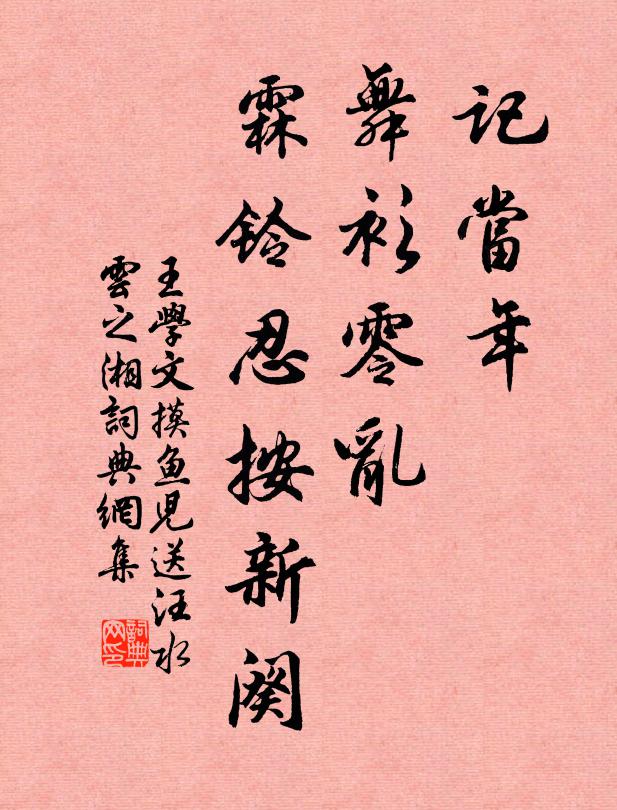 記當年
舞衫零亂
霖鈴忍按新闋
王學文摸魚兒送汪水
雲之湘詞典網集
詞典
网印